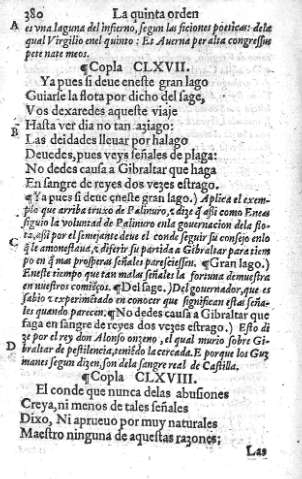 380 La quinta orden
A es vna laguna del infierno, segun las ficiones poeticas: dela
qual Virgilio enel quinto: Et Auerna per alta congressus
pete nate meos.
¶Copla CLXVII.
Ya pues si deue eneste gran lago
Guiarse la flota por dicho del sage,
Vos dexaredes aqueste viaje
B Hasta ver dia no tan aziago:
Las deidades lleuar por halago
Deuedes, pues veys señales de plaga:
No dedes causa a Gibraltar que haga
En sangre de reyes dos vezes estrago.
¶Ya pues si deue eneste gran lago.) Aplica el exem-
plo que arriba truxo de Palinuro, τ dize q̃ assi como Eneas
siguio la voluntad de Palinuro enla gouernacion dela flo-
ta, assi por el semejante deue el conde seguir su consejo enlo
C q̃ le amonestaua, τ diferir su partida a Gibraltar para tiem
po en q̃ mas prosperas señales paresciessen. ¶Gran lago.)
Eneste tiempo que tan malas señales la fortuna demuestra
en nuestros comiẽços. ¶Del sage.) Del gouernador, que es
sabio τ experimẽtado en conocer que significan estas seña-
les quando parecen. ¶No dedes causa a Gibraltar que
faga en sangre de reyes dos vezes estrago.) Esto di
ze por el rey don Alonso onzeno, el qual murio sobre Gi-
D braltar de pestilencia, teniẽdo la cercada. E porque los Guz
manes segun dizen, son dela sangre real de Castilla.
¶Copla CLXVIII.
El conde que nunca delas abusiones
Creya, ni menos de tales señales
Dixo, Ni aprueuo por muy naturales
Maestro ninguna de aquestas razones;
Las